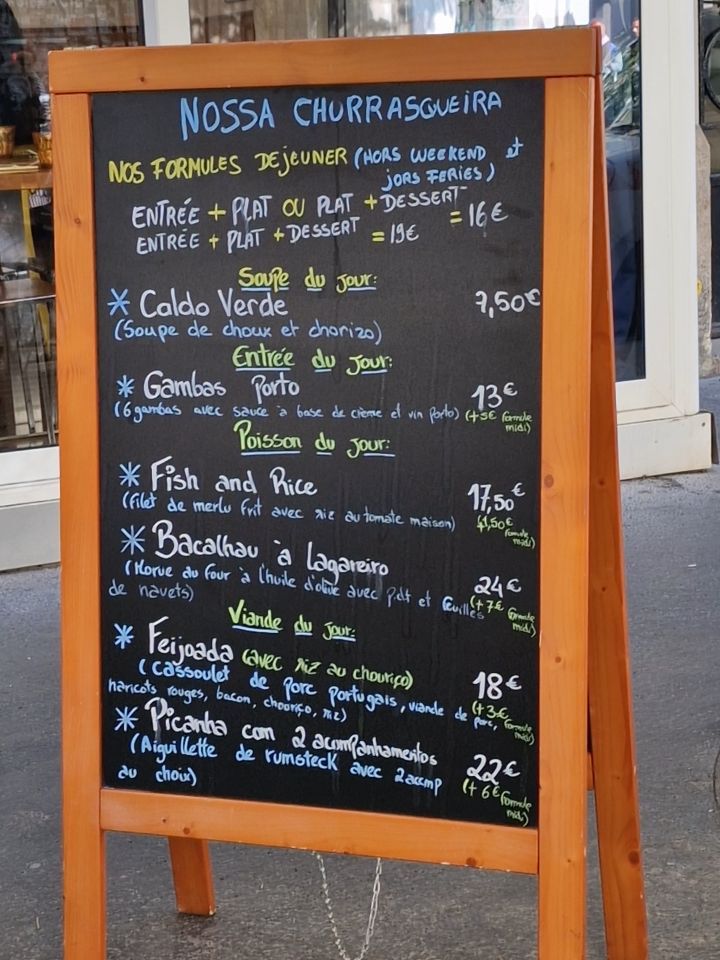 NOSSA CHURRASQUEIRA
NOS FORMULES DEJEUNER (HORS WEEKEND et
JORS FERIES)
ENTRÉE + PLAT OU PLAT + DESSERT = 16€
ENTRÉE + PLAT + DESSERT = 19€
Soupe du jour:
* Caldo Verde 7,50€
(Soupe de choux et chorizo)
Entrée du jour:
* Gambas Porto 13€
(6 gambas avec sauce à base de crème et vin porto) (+5€ formule
midi)
Poisson du jour:
* Fish and Rice 17,50€
(filet de merlu frit avec riz au tomate maison)
formule
midi)
* Bacalhau à Lagareiro 24€
(Morue au four à l'huile d'olive avec p.d.t et feuilles (+7€ formule
de navets) midi)
Viande du jour:
* Feijoada (avec riz au chouriço) 18€
(Cassoulet de porc portugais, viande de porc, (+3€ formule
haricots rouges, bacon, chouriço, riz) midi)
* Picanha com 2 acompanhamentos 22€
(Aiguillette de rumsteck avec 2 accmp (+6€ formule
au choix) midi)